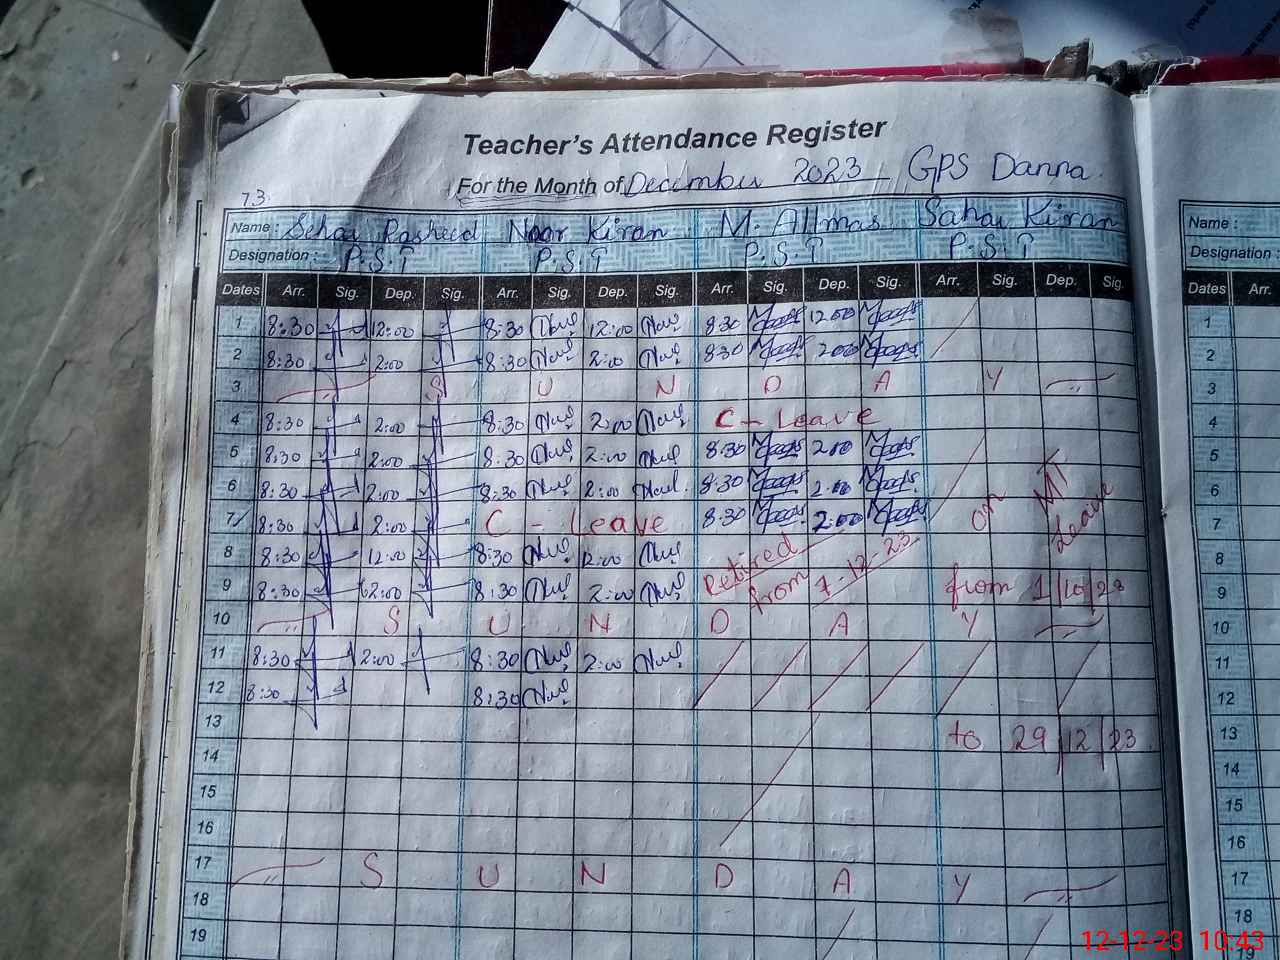 Teacher's Attendance Register
For the Month of December 2023 GPS Danna.
73
Name : Sehar Rasheed Noor Kiran M. Allmas Sahar Kiran
Designation : P.S.T P.S.T P.S.T P.S.T
Dates Arr. Sig. Dep. Sig. Arr. Sig. Dep. Sig. Arr. Sig. Dep. Sig. Arr. Sig. Dep. Sig.
1 8:30 12:00 8:30 12:00 8:30 12:00
2 8:30 2:00 8:30 2:00 8:30 2:00
3 S U N D A Y
4 8:30 2:00 8:30 2:00 C - Leave
5 8:30 2:00 8:30 2:00 8:30 2:00
6 8:30 2:00 8:30 2:00 8:30 2:00 on MT
7 8:30 2:00 C - Leave 8:30 2:00 Leave
8 8:30 12:00 8:30 12:00 Retired
9 8:30 2:00 8:30 2:00 from 7-12-23 from 1/10/23
10 S U N D A Y
11 8:30 2:00 8:30 2:00
12 8:30 8:30
13 to 29/12/23
14
15
16
17 S U N D A Y
18
19
Name :
Designation :
Dates Arr.
1
2
3
4
5
6
7
8
9
10
11
12
13
14
15
16
17
18
19
12-12-23 10:43